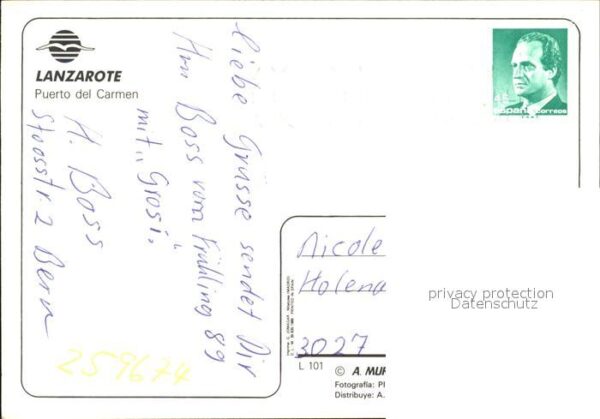 LANZAROTE
Puerto del Carmen
liebe Grüsse sendet Dir
Hm Boss vom Frühling 89
mit "Grosi".
H. Boss
Stoosstr. 2 Bern
España correos
Nicole
Holena
3027
privacy protection
Datenschutz
259674
L 101
© A. MUR
Fotografía: Pl
Distribuye: A.